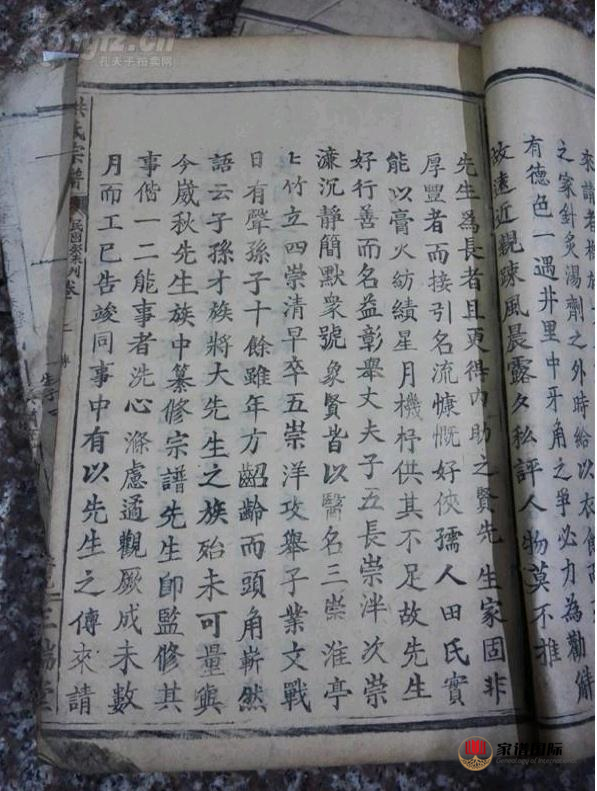 來請者
之家針灸湯劑之外時給以衣
有德色一遇井里中牙角之爭必力為勸解
故遠近親疎風晨露夕私評人物莫不推
先生為長者且更得內助之賢先生家固非
厚豐者而接引名流慷慨好俠孺人田氏實
能以膏火紡績星月機杼供其不足故先生
好行善而名益彰舉丈夫子五長崇泮次崇
濂沉靜簡默衆號象賢皆以醫名三崇淮亭
亭竹立四崇清早卒五崇洋攻舉子業文戰
日有聲孫子十餘雖年方齠齡而頭角嶄然
語云子孫才族將大先生之族殆未可量與
今嵗秋先生族中纂修宗譜先生卽監修其
事偕一二能事者洗心滌慮遹觀厥成未數
月而工已告竣同事中有以先生之傳來請
洪氏宗譜
卷
三瑞堂
kongfz.cn
孔夫子拍卖网
家谱国际